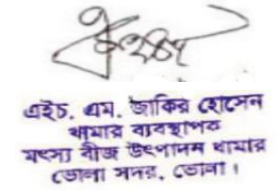 এইচ. এম. জাকির হোসেন
খামার ব্যবস্থাপক
মৎস্য বীজ উৎপাদন খামার
ভোলা সদর, ভোলা।